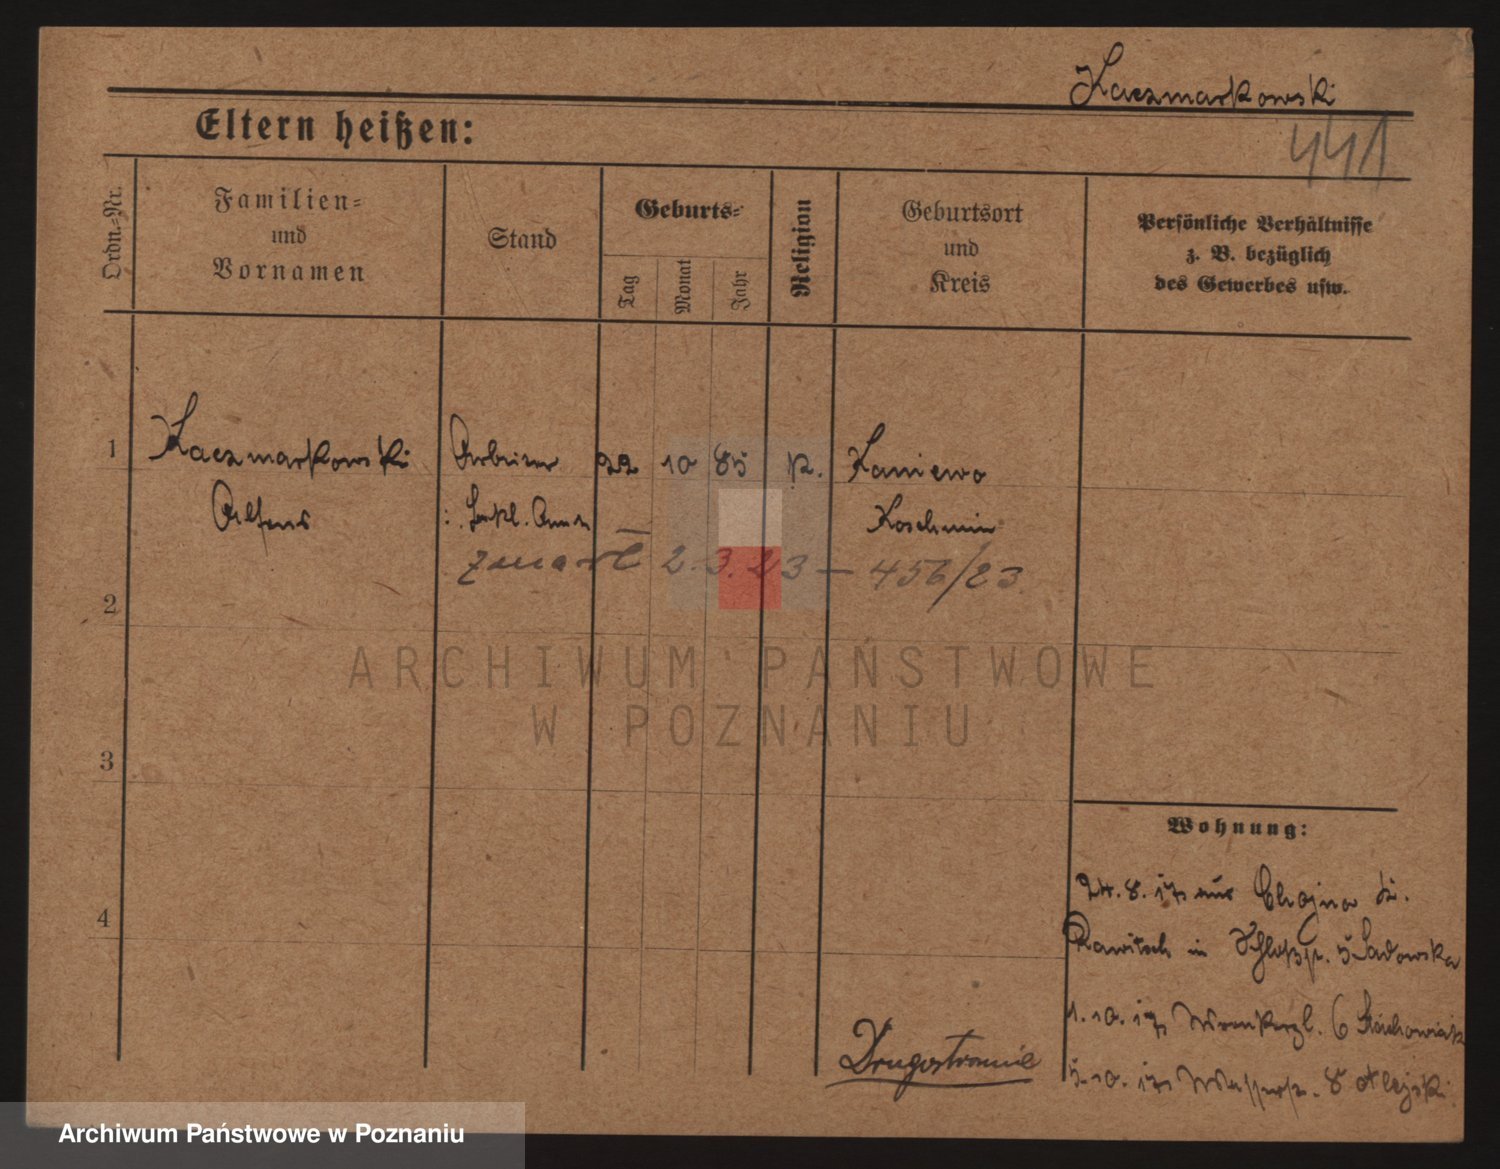 Kaczmarkowski
441
Eltern heißen:
Ordn.-Nr.
Familien-
und
Vornamen
Stand
Geburts-
Tag
Monat
Jahr
Religion
Geburtsort
und
Kreis
Persönliche Verhältnisse
z. B. bezüglich
des Gewerbes usw.
1
Kaczmarkowski
Arbeiter
22
10
85
k.
Kaniewo
Alfons
Koschmin
zmarł 2.3.23 — 456/23
2
ARCHIWUM PAŃSTWOWE
W POZNANIU
3
Wohnung:
24.8.17 aus Chojno Kr.
4
Rawitsch in Schloßstr. 5 Sadowska
1.10.17 6 Stachowiak
Drugostronnie
5.10.17 Wasserstr. 8
Archiwum Państwowe w Poznaniu